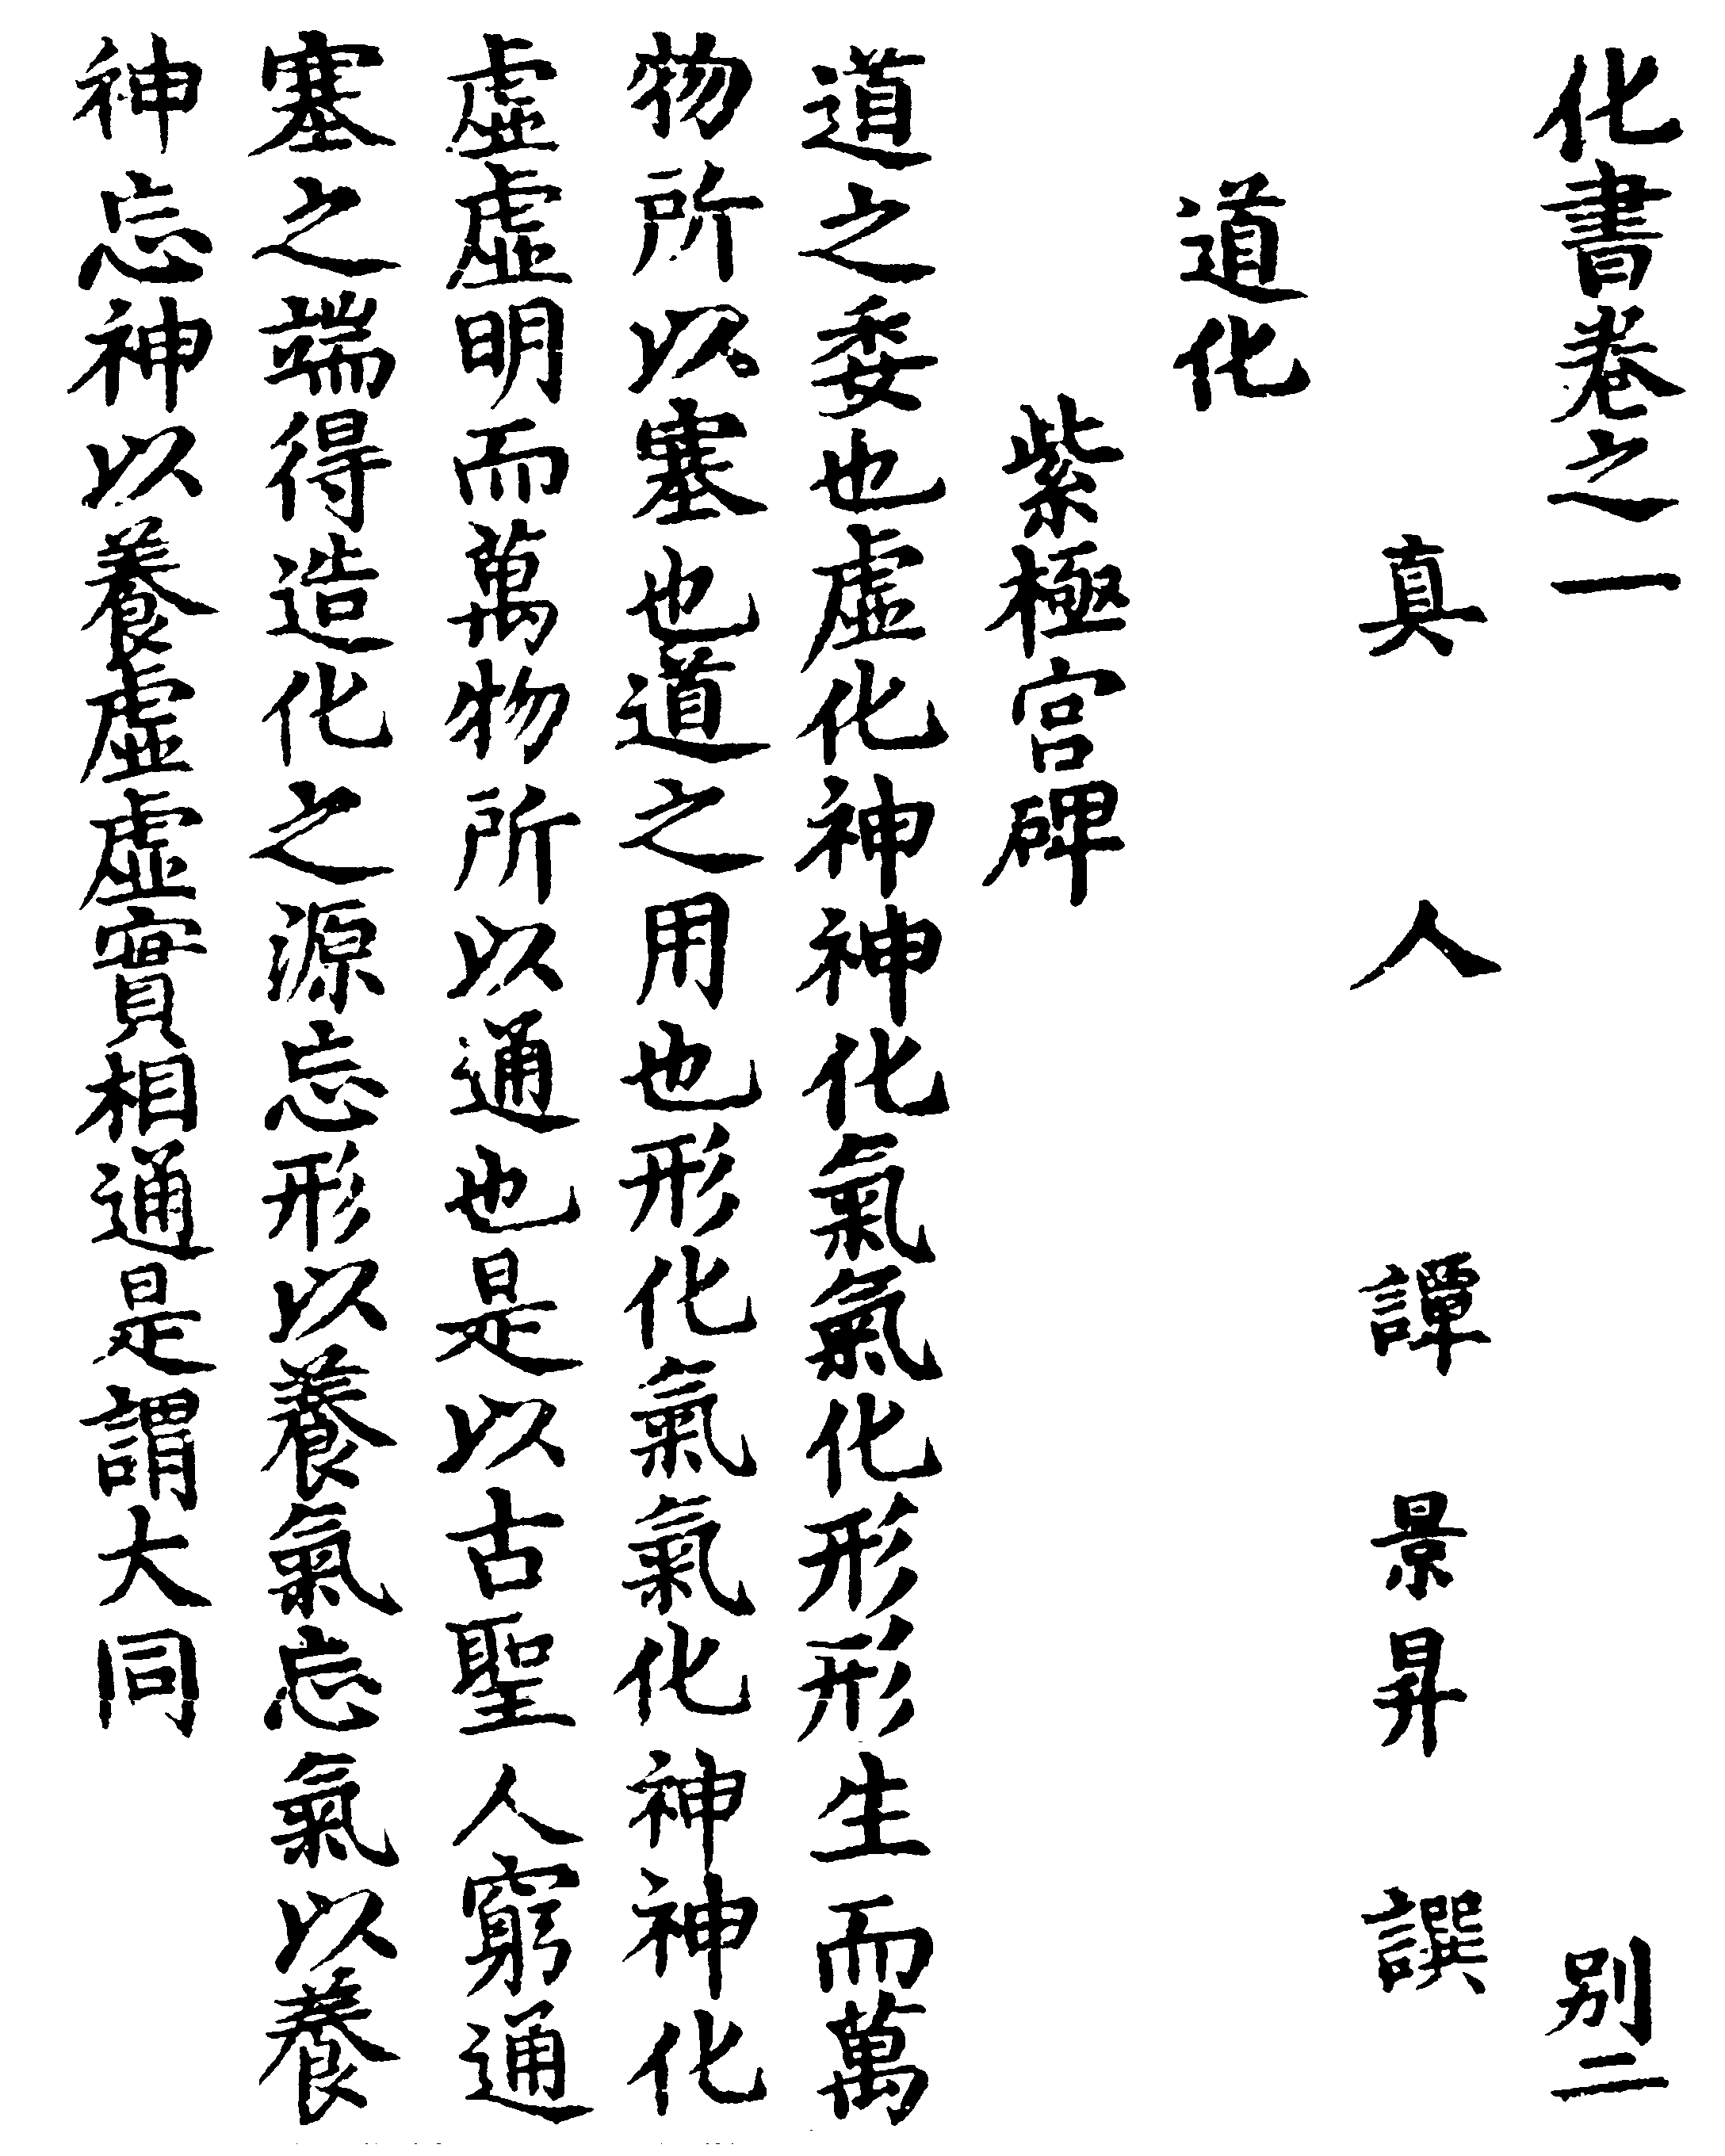 化書卷之一 別二
真人譚景昇譔
道化
紫極宮碑
道之委也虛化神神化氣氣化形形生而萬
物所以塞也道之用也形化氣氣化神神化
虛虛明而萬物所以通也是以古聖人窮通
塞之端得造化之源忘形以養氣忘氣以養
神忘神以養虛虛實相通是謂大同